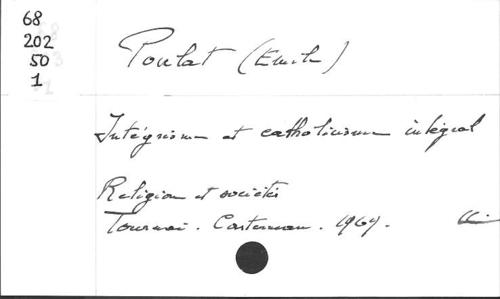 68
202
50
1
Poulat (Emile)
Intégrisme et catholicisme intégral
Religion et sociétés
Tournai. Casterman. 1969.